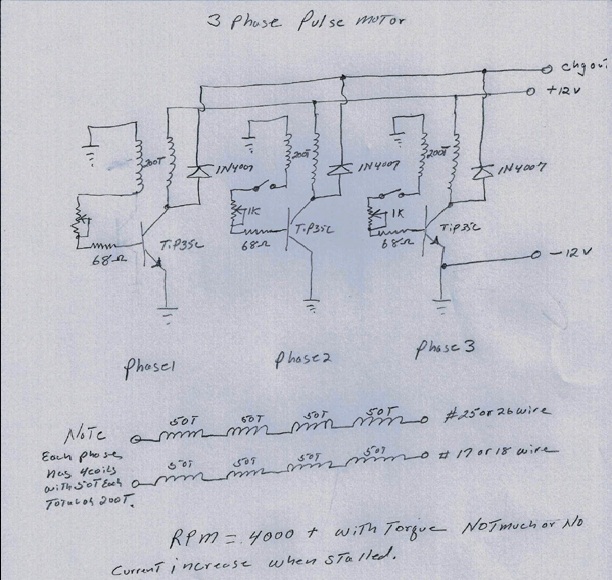 3 Phase Pulse motor
chg out
+12V
200T
1N4007
200T
1N4007
200T
1N4007
1K
1K
TiP35C
TiP35C
TiP35C
68Ω
68Ω
68Ω
-12V
Phase1
Phase2
Phase3
50T 50T 50T 50T #25 or 26 wire
NOTE
Each phase
has 4 coils
with 50T Each
Total of 200T.
50T 50T 50T 50T # 17 or 18 wire
RPM = 4000 + with Torque NOT much or No
Current increase when stalled.